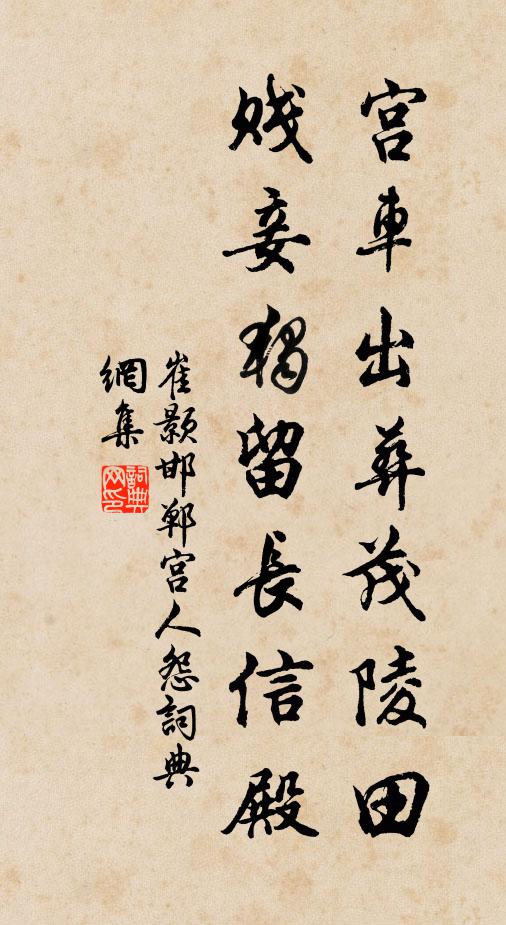 宮車出葬茂陵田
賤妾獨留長信殿
崔顥邯鄲宮人怨詞典
網集
詞典
网印